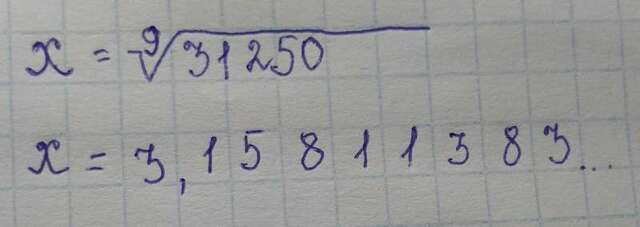 x = ⁹√31250
x = 3,15811383...